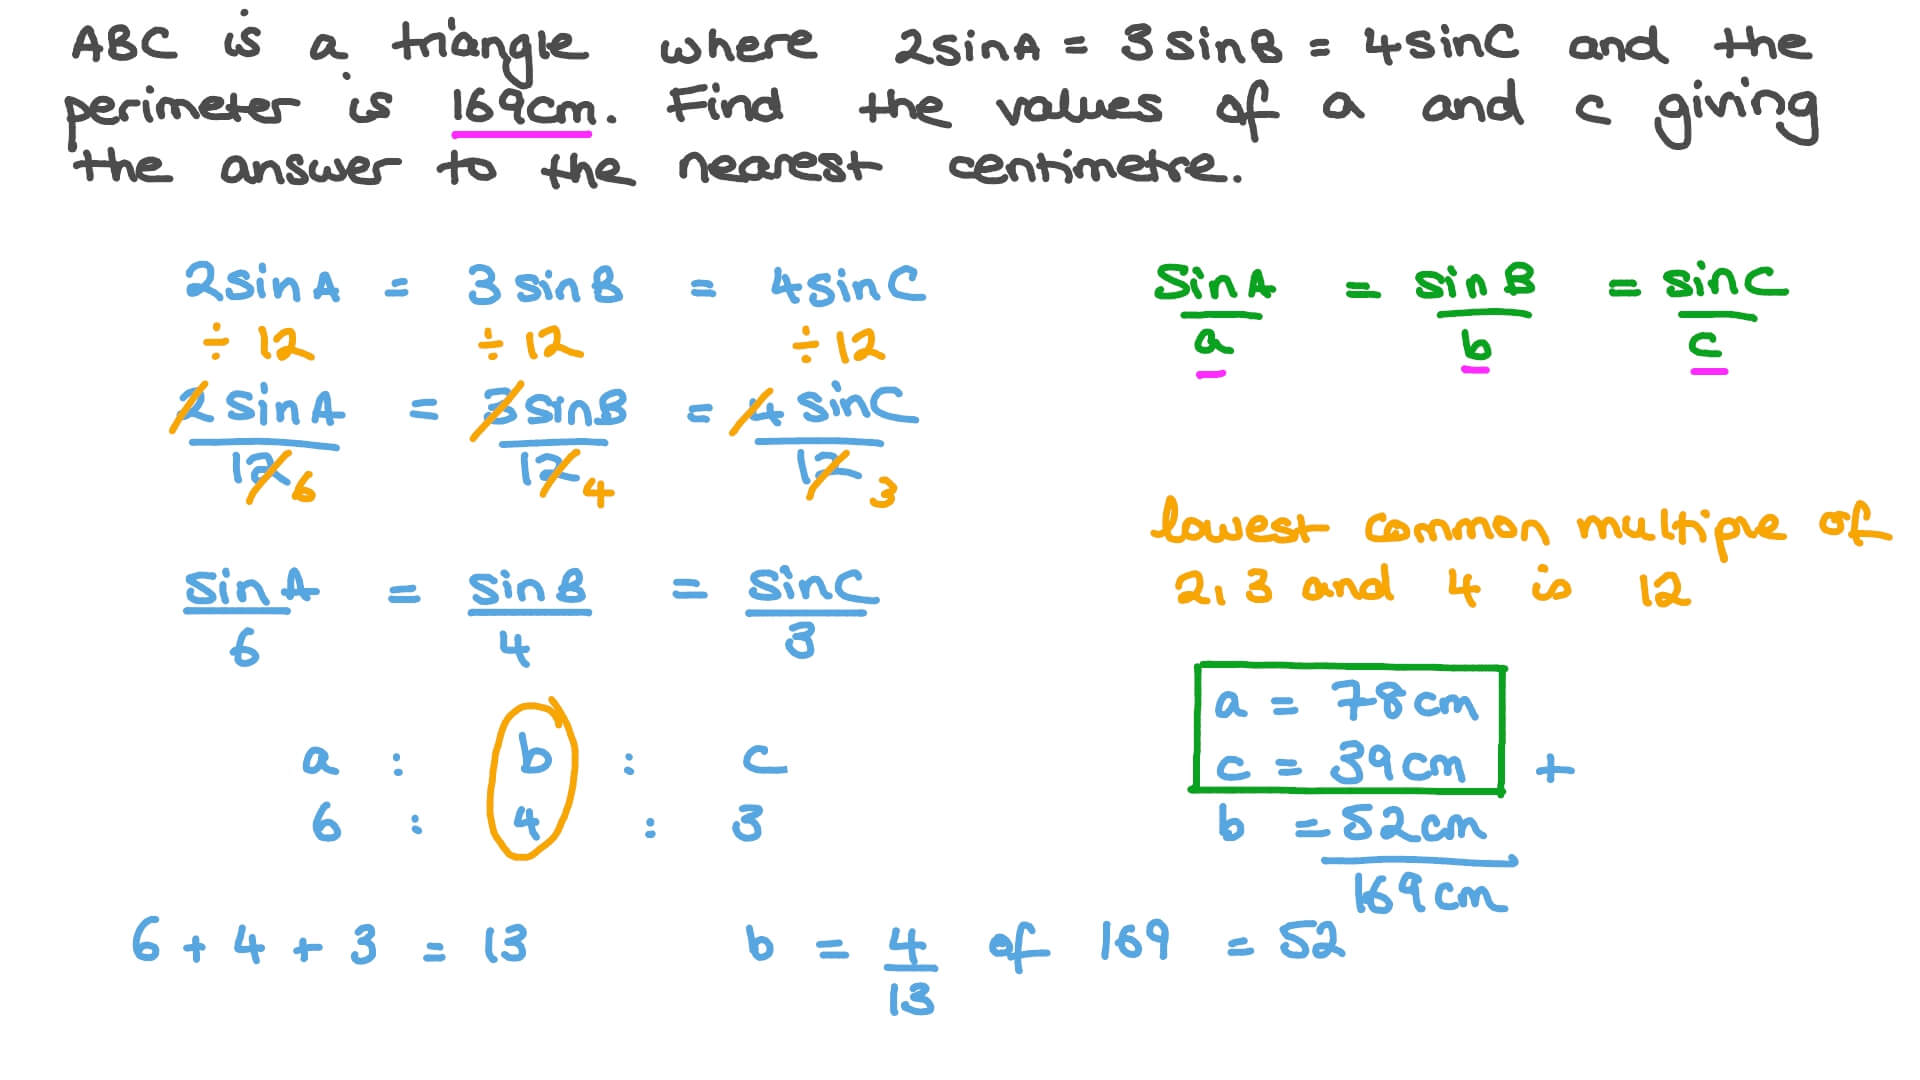 ABC is a triangle where 2sinA = 3sinB = 4sinC and the
perimeter is 169cm. Find the values of a and c giving
the answer to the nearest centimetre.
2sinA = 3sinB = 4sinC
÷12 ÷12 ÷12
2sinA/12 6 = 3sinB/12 4 = 4sinC/12 3
sinA/6 = sinB/4 = sinC/3
a : b : c
6 : 4 : 3
6 + 4 + 3 = 13
b = 4/13 of 169 = 52
SinA/a = sinB/b = sinC/c
lowest common multiple of
2, 3 and 4 is 12
a = 78cm
c = 39cm +
b = 52cm
169cm